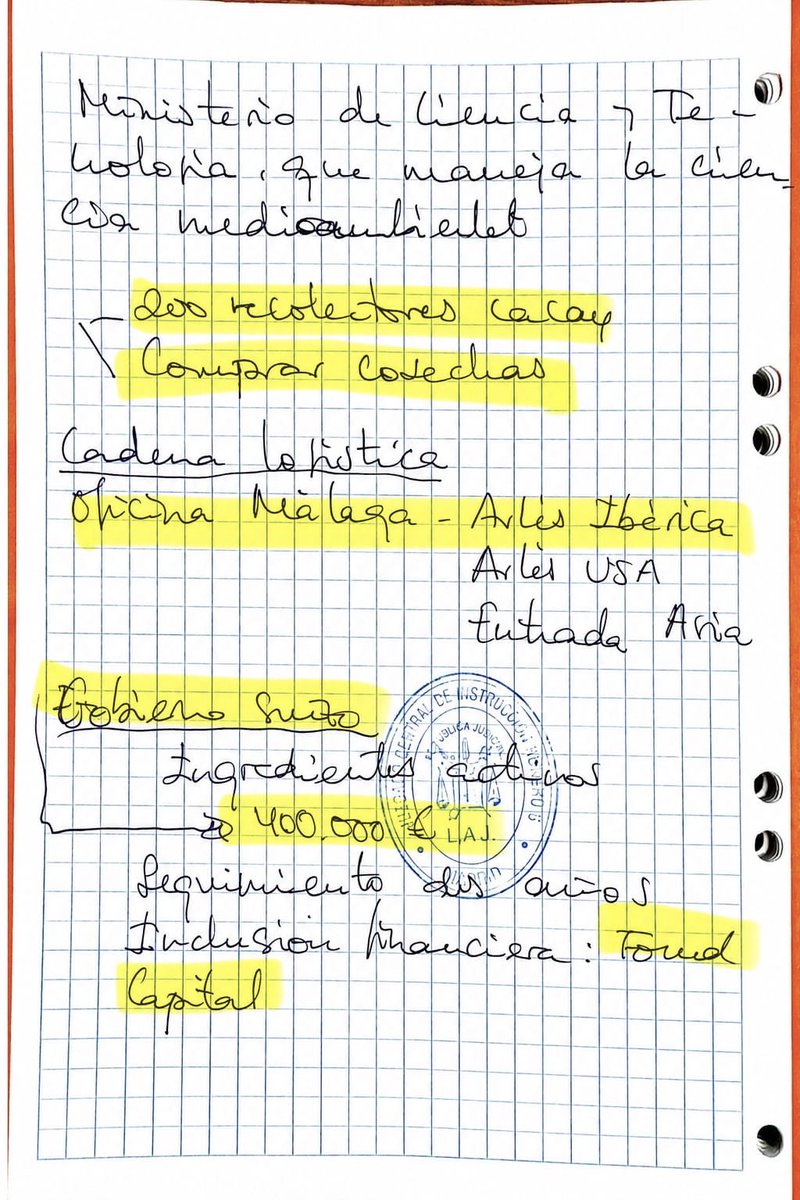 Ministerio de Ciencia y Tec-
nología, que maneja la cien-
cia medioambiental
200 recolectores cacay
Comprar cosechas
Cadena logística
Oficina Málaga - Arlés Ibérica
Arlés USA
Entrada Aria
Gobierno suizo
Ingredientes activos
400.000 €
Seguimiento dos años
Inclusión financiera: Found
Capital
JUZGADO CENTRAL DE INSTRUCCIÓN NÚMERO 6
FE PÚBLICA JUDICIAL
L.A.J.